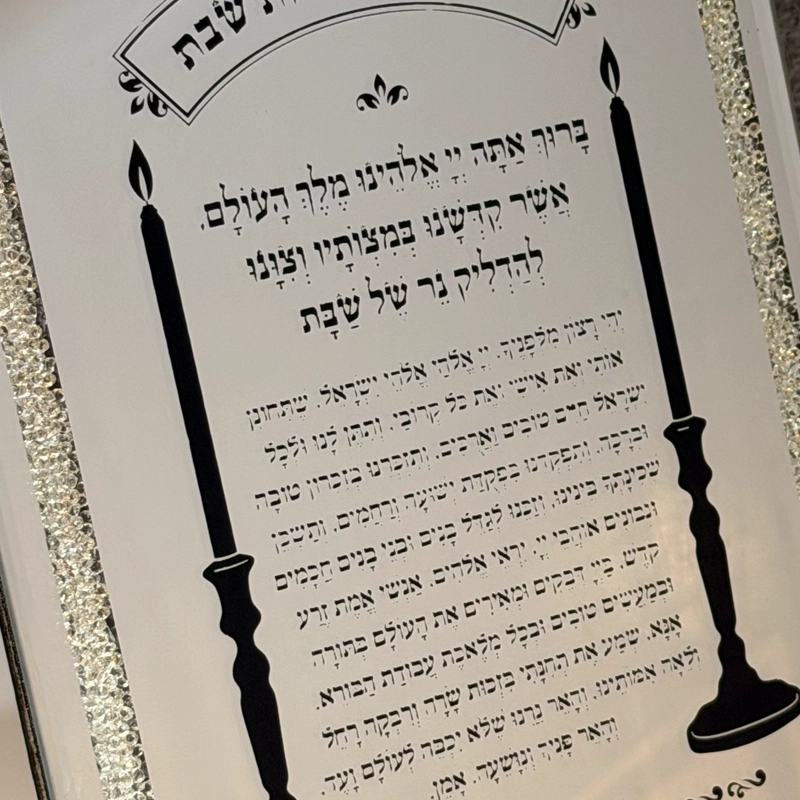 שבת
בָּרוּךְ אַתָּה יְיָ אֱלֹהֵינוּ מֶלֶךְ הָעוֹלָם.
אֲשֶׁר קִדְּשָׁנוּ בְּמִצְוֹתָיו וְצִוָּנוּ
לְהַדְלִיק נֵר שֶׁל שַׁבָּת
יְהִי רָצוֹן מִלְּפָנֶיךָ, יְיָ אֱלֹהַי אֱלֹהֵי יִשְׂרָאֵל, שֶׁתְּחוֹנֵן
אוֹתִי וְאֶת אִישִׁי וְאֶת כָּל קְרוֹבַי, וְתִתֵּן לָנוּ וּלְכָל
יִשְׂרָאֵל חַיִּים טוֹבִים וַאֲרֻכִּים, וְתִזְכְּרֵנוּ בְּזִכְרוֹן טוֹבָה
וּבְרָכָה, וְתִפְקְדֵנוּ בִּפְקֻדַּת יְשׁוּעָה וְרַחֲמִים, וְתַשְׁכֵּן
שְׁכִינָתְךָ בֵּינֵינוּ, וְזַכֵּנוּ לְגַדֵּל בָּנִים וּבְנֵי בָנִים חֲכָמִים
וּנְבוֹנִים אוֹהֲבֵי יְיָ, יִרְאֵי אֱלֹהִים, אַנְשֵׁי אֱמֶת זֶרַע
קֹדֶשׁ, בַּיְיָ דְּבֵקִים וּמְאִירִים אֶת הָעוֹלָם בַּתּוֹרָה
וּבְמַעֲשִׂים טוֹבִים וּבְכָל מְלֶאכֶת עֲבוֹדַת הַבּוֹרֵא.
אָנָּא, שְׁמַע אֶת תְּחִנָּתִי בִּזְכוּת שָׂרָה וְרִבְקָה רָחֵל
וְלֵאָה אִמּוֹתֵינוּ, וְהָאֵר נֵרֵנוּ שֶׁלֹּא יִכְבֶּה לְעוֹלָם וָעֶד,
וְהָאֵר פָּנֶיךָ וְנִוָּשֵׁעָה. אָמֵן.